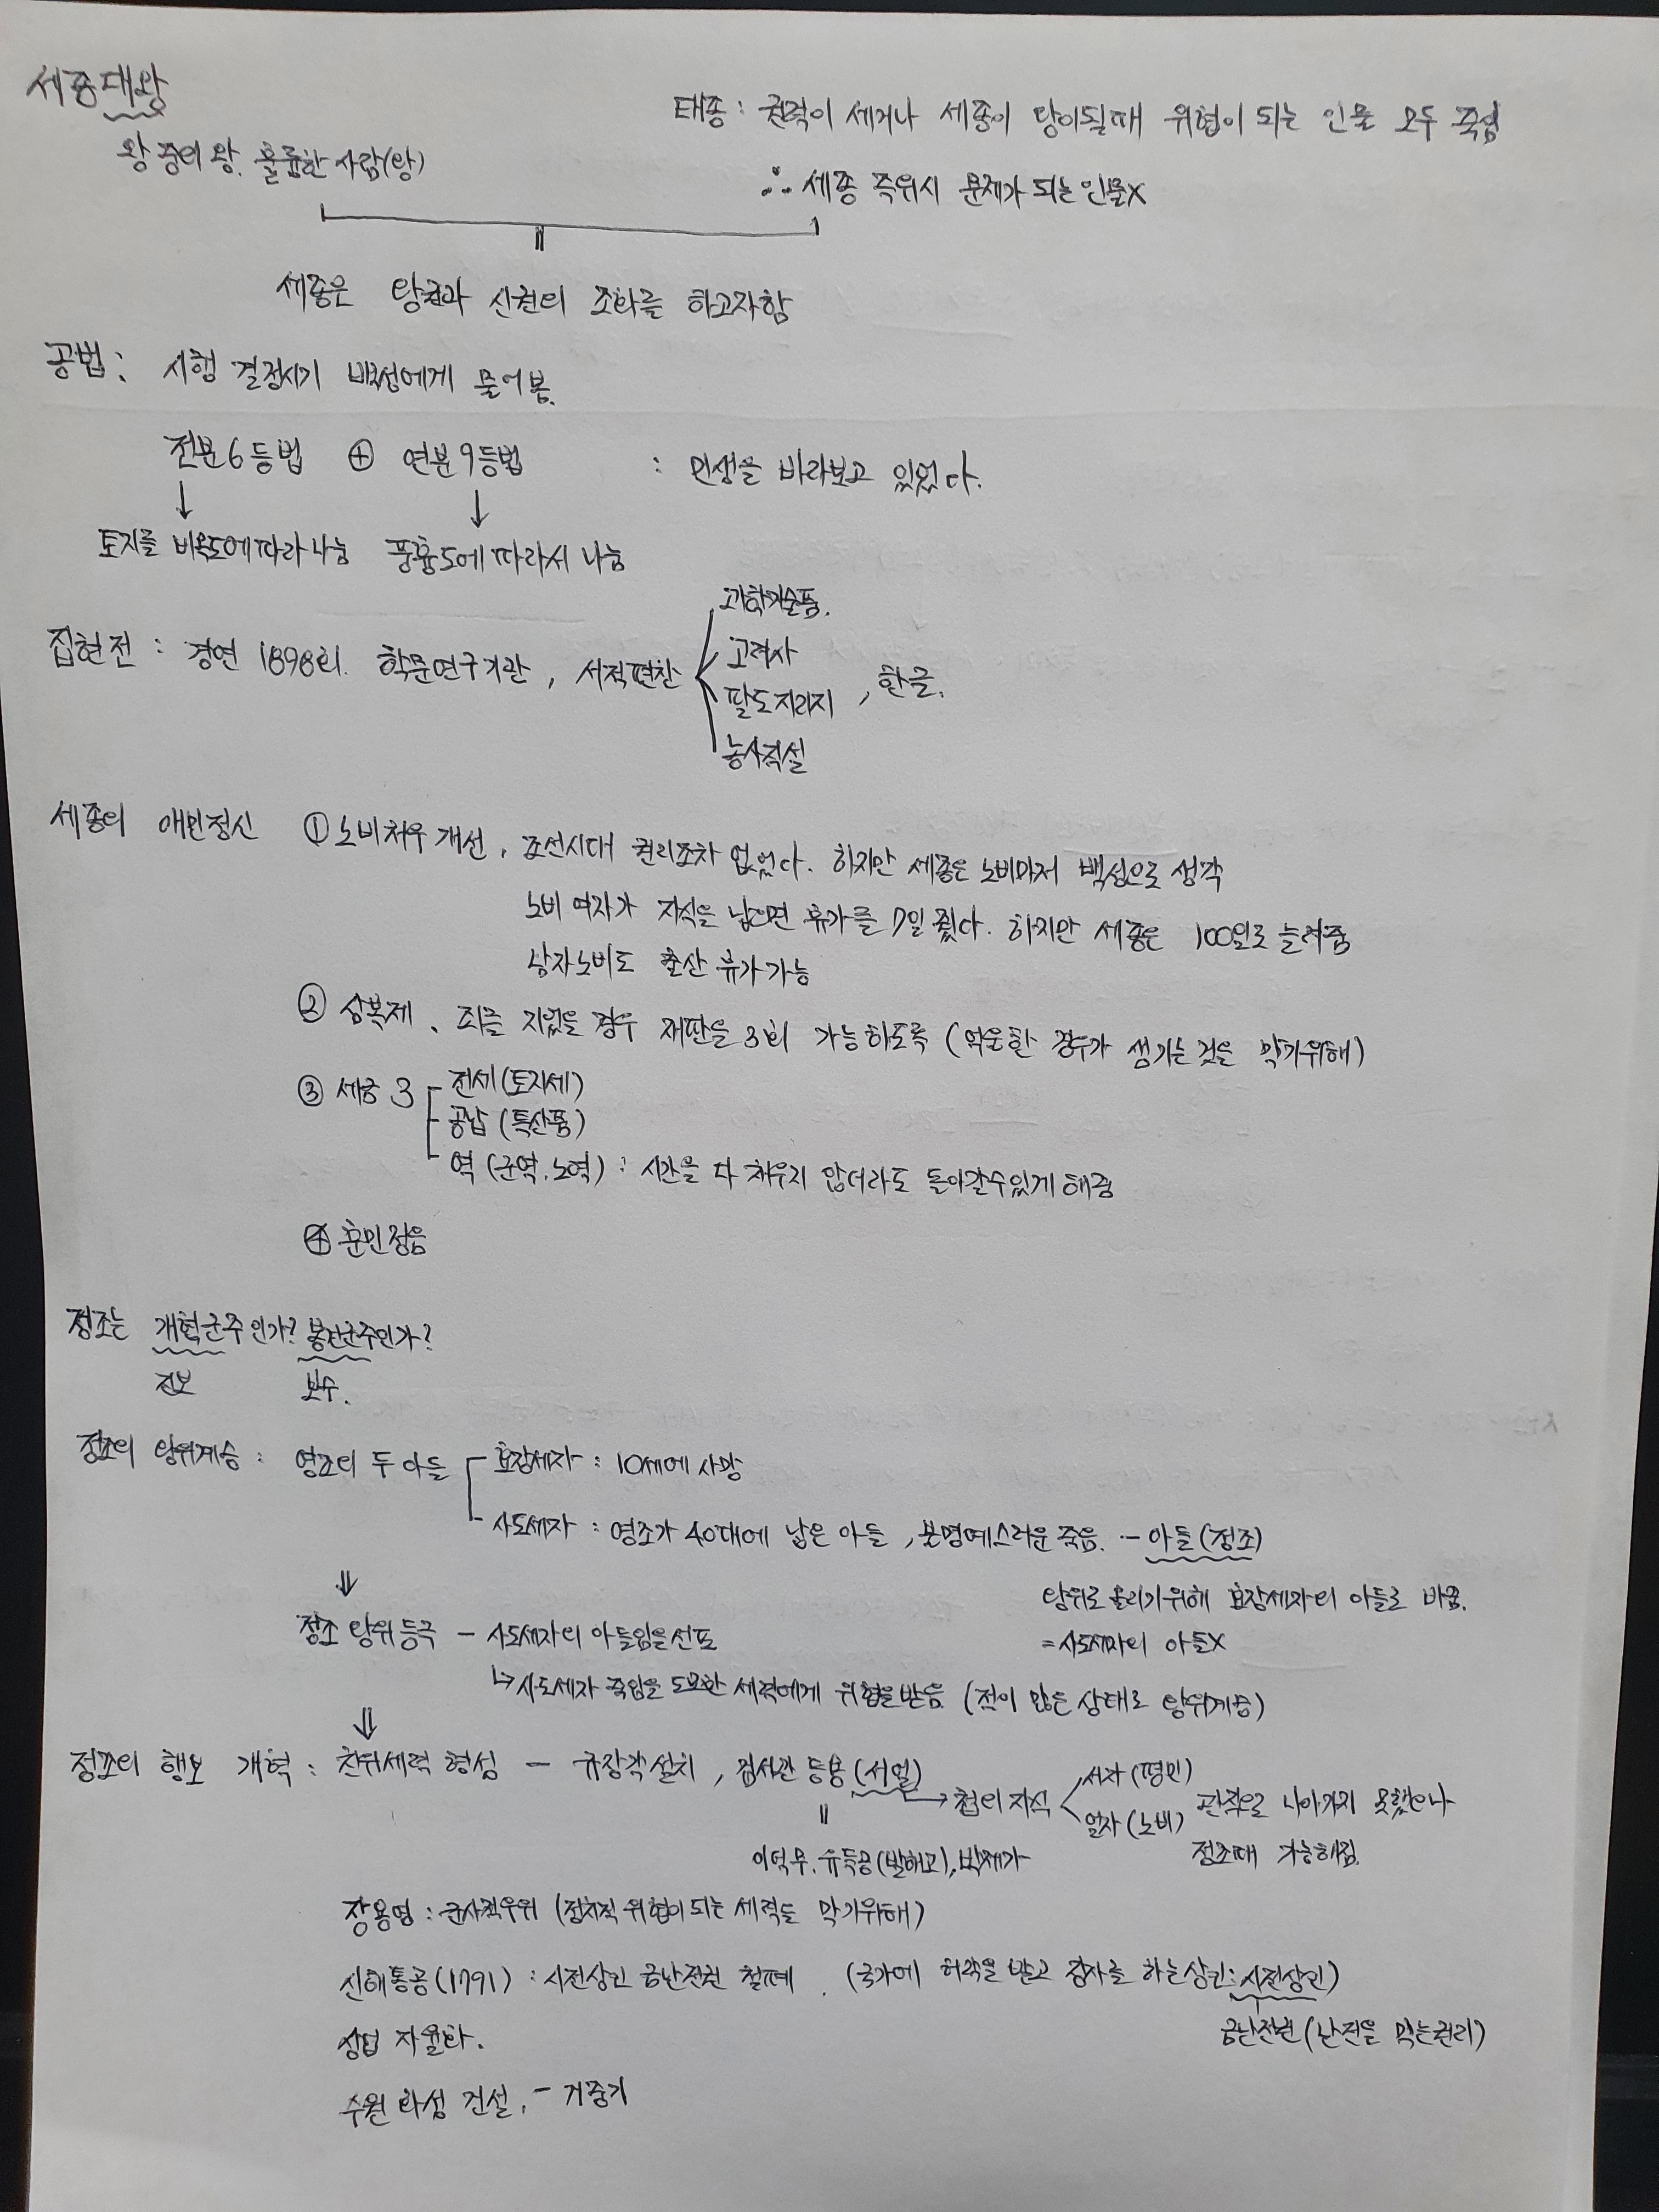 세종대왕
왕 중의 왕. 훌륭한 사람(왕)
태종 : 권력이 세거나 세종이 왕이될때 위협이 되는 인물 모두 죽임
∴ 세종 즉위시 문제가 되는 인물X
세종은 왕권과 신권의 조화를 하고자함
공법 : 시행 결정시기 백성에게 물어봄.
전분6등법 ⊕ 연분9등법 : 민생을 바라보고 있었다.
↓ ↓
토지를 비옥도에따라 나눔 풍흉도에 따라서 나눔
집현전 : 경연 1898회. 학문연구기관, 서적편찬
과학기술품.
고려사
팔도지리지 , 한글.
농사직설
세종의 애민정신 ① 노비처우 개선, 조선시대 권리조차 없었다. 하지만 세종은 노비마저 백성으로 생각
노비 여자가 자식을 낳으면 휴가를 7일 줬다. 하지만 세종은 100일로 늘려줌
남자노비도 출산 휴가가능
② 삼복제, 죄를 지었을 경우 재판을 3회 가능하도록 (억울한 경우가 생기는 것을 막기위해)
③ 세금 3
전세(토지세)
공납 (특산품)
역 (군역.노역) : 시간을 다 채우지 않더라도 돌아갈수있게 해줌
④ 훈민정음
정조는 개혁군주인가? 봉건군주인가?
진보 보수.
정조의 왕위계승 : 영조의 두 아들
효장세자 : 10세에 사망
사도세자 : 영조가 40대에 낳은 아들, 불명예스러운 죽음. - 아들(정조)
왕위로 올리기위해 효장세자의 아들로 바꿈.
= 사도세자의 아들X
⇓
정조 왕위등극 - 사도세자의 아들임을 선포
↳ 사도세자 죽임을 도모한 세력에게 위협을받음 (적이 많은 상태로 왕위계승)
⇓
정조의 행보 개혁 : 친위세력 형성 - 규장각설치, 검서관 등용 (서얼)
→ 첩의 자식
서자 (평민)
얼자 (노비)
관직으로 나아가지 못했으나
정조때 가능해짐.
이덕무. 유득공(발해고), 박제가
장용영 : 군사적우위 (정치적 위협이 되는 세력을 막기위해)
신해통공(1791) : 시전상인 금난전권 철폐. (국가에 허락을 받고 장사를 하는상인:시전상인)
금난전권(난전을 막는권리)
상업 자율화.
수원 화성 건설. - 거중기